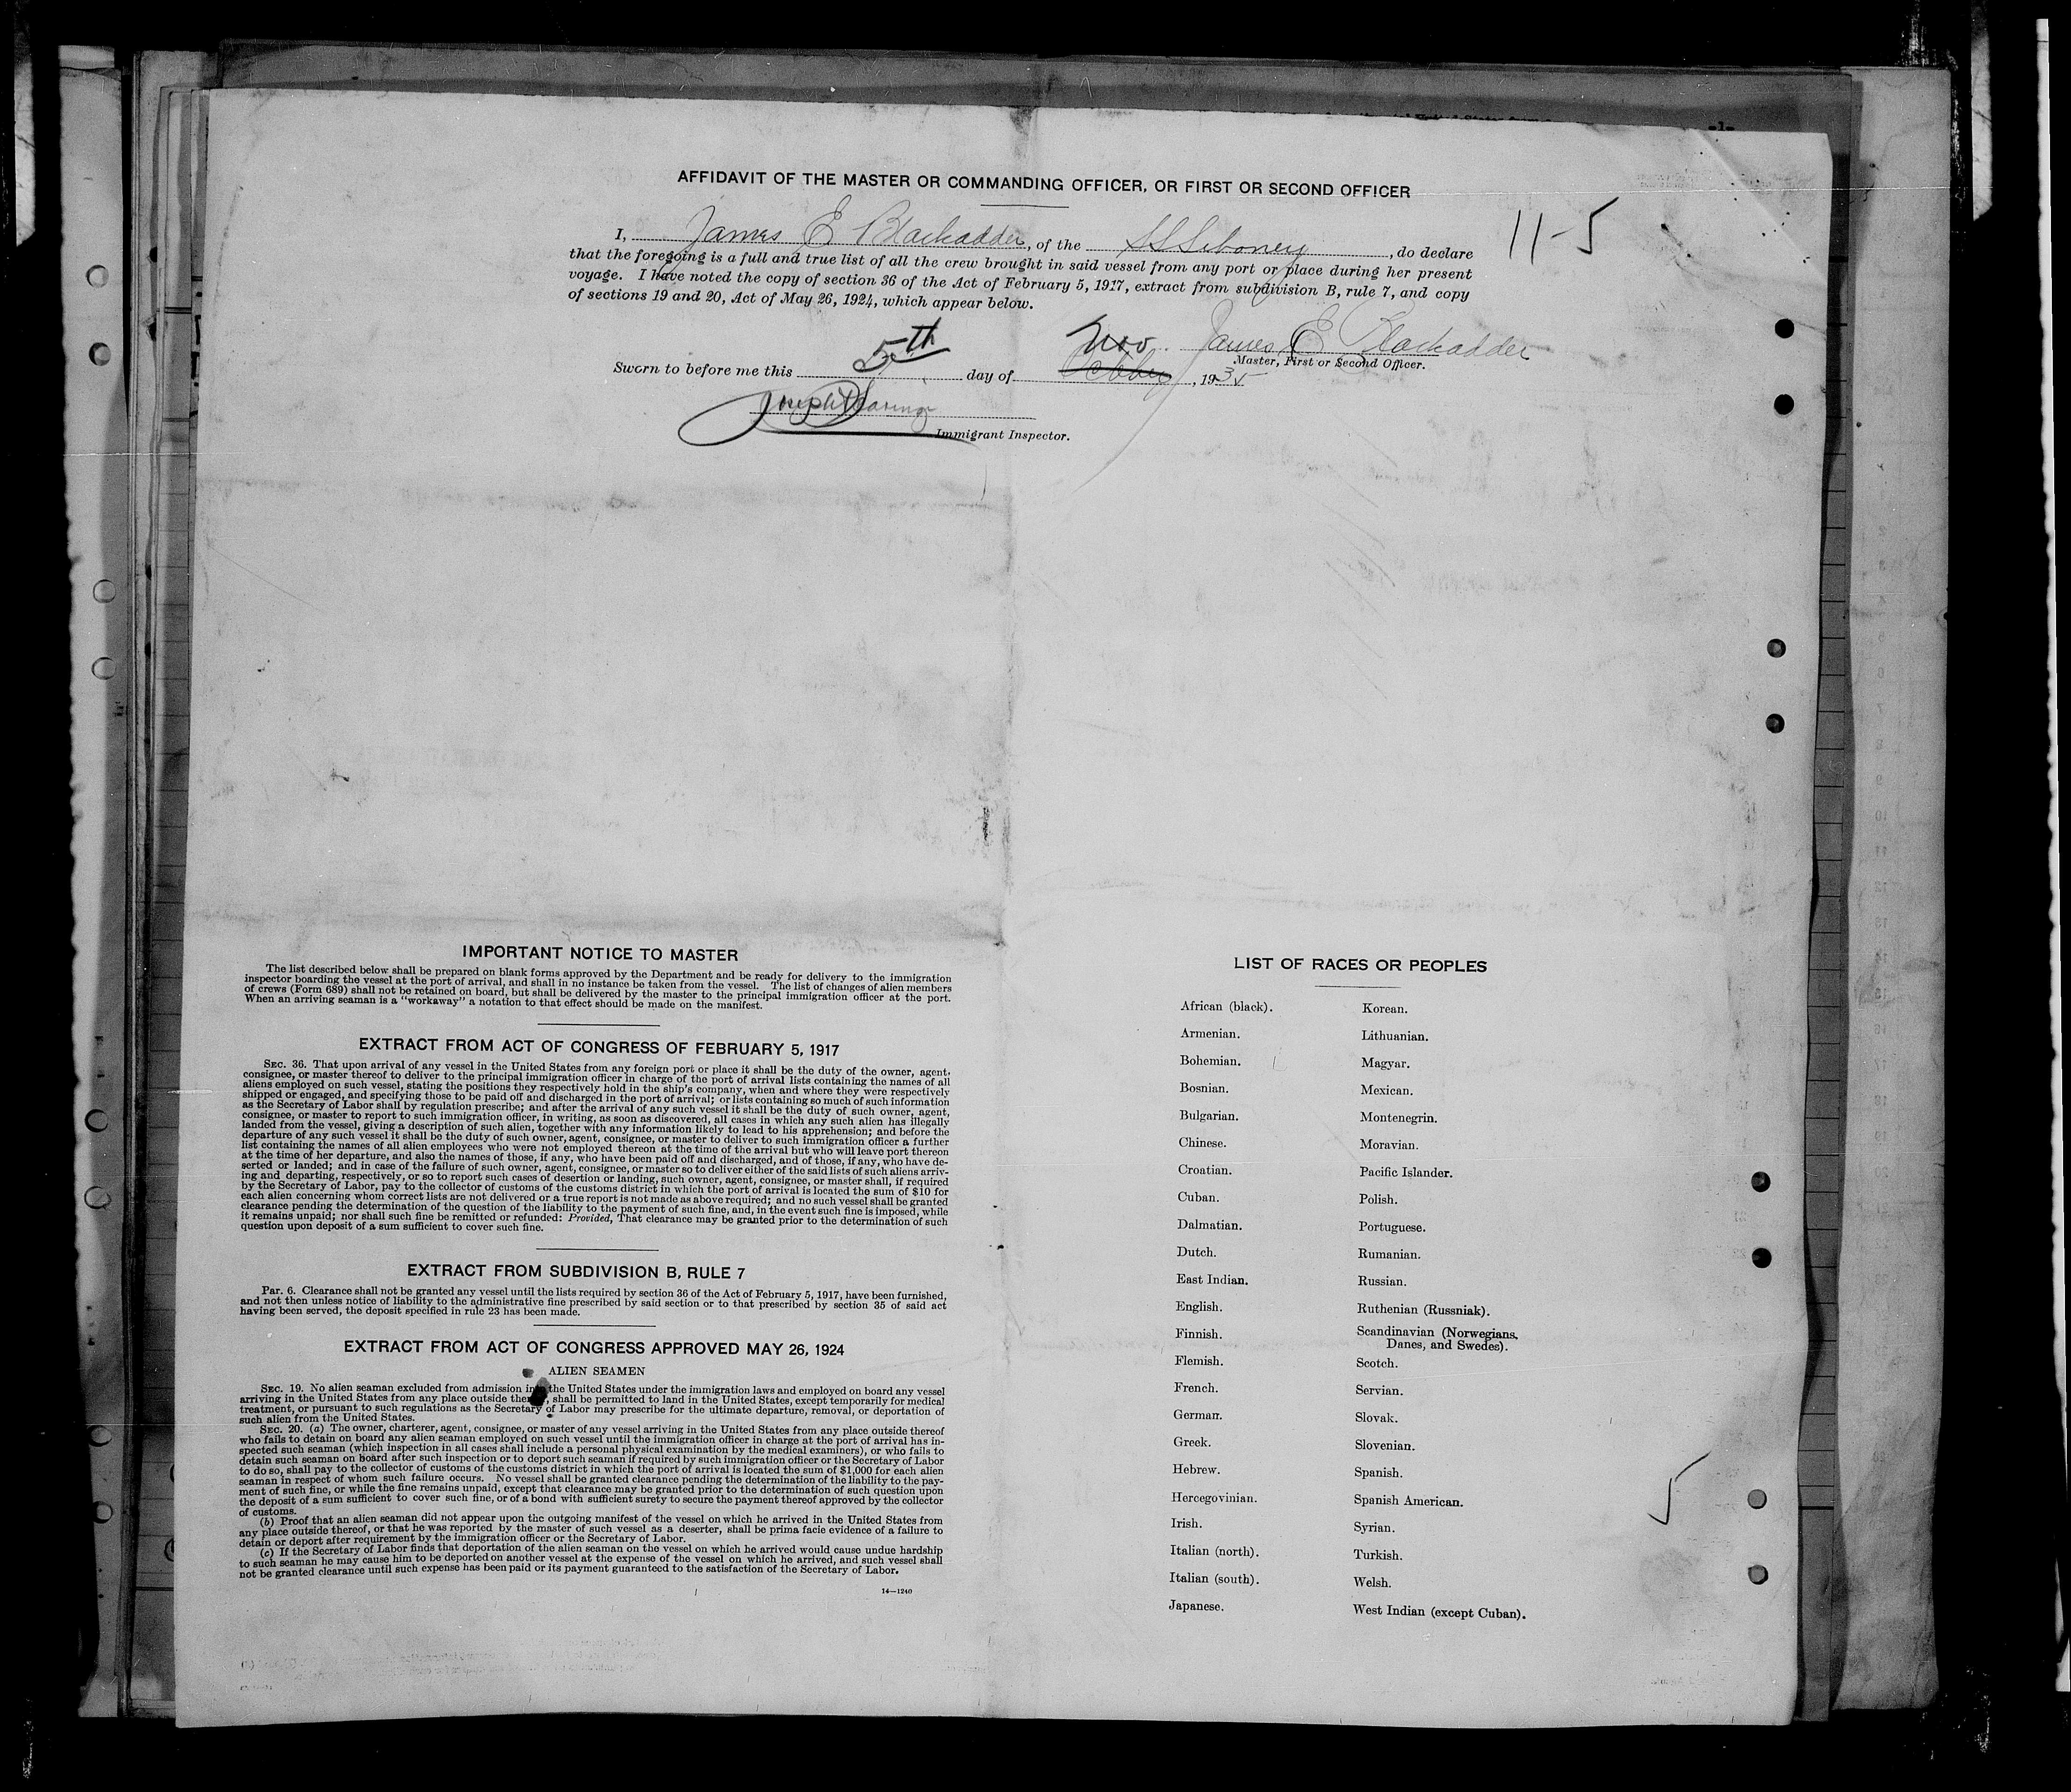 AFFIDAVIT OF THE MASTER OR COMMANDING OFFICER, OR FIRST OR SECOND OFFICER
I, James E Blackadder, of the SS Siboney, do declare
11-5
that the foregoing is a full and true list of all the crew brought in said vessel from any port or place during her present
voyage. I have noted the copy of section 36 of the Act of February 5, 1917, extract from subdivision B, rule 7, and copy
of sections 19 and 20, Act of May 26, 1924, which appear below.
James E Blackadder
Master, First or Second Officer.
Sworn to before me this 5th day of Nov October, 1935
Joseph
Immigrant Inspector.
IMPORTANT NOTICE TO MASTER
The list described below shall be prepared on blank forms approved by the Department and be ready for delivery to the immigration
inspector boarding the vessel at the port of arrival, and shall in no instance be taken from the vessel. The list of changes of alien members
of crews (Form 689) shall not be retained on board, but shall be delivered by the master to the principal immigration officer at the port.
When an arriving seaman is a "workaway" a notation to that effect should be made on the manifest.
EXTRACT FROM ACT OF CONGRESS OF FEBRUARY 5, 1917
SEC. 36. That upon arrival of any vessel in the United States from any foreign port or place it shall be the duty of the owner, agent,
consignee, or master thereof to deliver to the principal immigration officer in charge of the port of arrival lists containing the names of all
aliens employed on such vessel, stating the positions they respectively hold in the ship's company, when and where they were respectively
shipped or engaged, and specifying those to be paid off and discharged in the port of arrival; or lists containing so much of such information
as the Secretary of Labor shall by regulation prescribe; and after the arrival of any such vessel it shall be the duty of such owner, agent,
consignee, or master to report to such immigration officer, in writing, as soon as discovered, all cases in which any such alien has illegally
landed from the vessel, giving a description of such alien, together with any information likely to lead to his apprehension; and before the
departure of any such vessel it shall be the duty of such owner, agent, consignee, or master to deliver to such immigration officer a further
list containing the names of all alien employees who were not employed thereon at the time of the arrival but who will leave port thereon
at the time of her departure, and also the names of those, if any, who have been paid off and discharged, and of those, if any, who have de-
serted or landed; and in case of the failure of such owner, agent, consignee, or master so to deliver either of the said lists of such aliens arriv-
ing and departing, respectively, or so to report such cases of desertion or landing, such owner, agent, consignee, or master shall, if required
by the Secretary of Labor, pay to the collector of customs of the customs district in which the port of arrival is located the sum of $10 for
each alien concerning whom correct lists are not delivered or a true report is not made as above required; and no such vessel shall be granted
clearance pending the determination of the question of the liability to the payment of such fine, and, in the event such fine is imposed, while
it remains unpaid; nor shall such fine be remitted or refunded: Provided, That clearance may be granted prior to the determination of such
question upon deposit of a sum sufficient to cover such fine.
EXTRACT FROM SUBDIVISION B, RULE 7
Par. 6. Clearance shall not be granted any vessel until the lists required by section 36 of the Act of February 5, 1917, have been furnished,
and not then unless notice of liability to the administrative fine prescribed by said section or to that prescribed by section 35 of said act
having been served, the deposit specified in rule 23 has been made.
EXTRACT FROM ACT OF CONGRESS APPROVED MAY 26, 1924
ALIEN SEAMEN
SEC. 19. No alien seaman excluded from admission into the United States under the immigration laws and employed on board any vessel
arriving in the United States from any place outside thereof, shall be permitted to land in the United States, except temporarily for medical
treatment, or pursuant to such regulations as the Secretary of Labor may prescribe for the ultimate departure, removal, or deportation of
such alien from the United States.
SEC. 20. (a) The owner, charterer, agent, consignee, or master of any vessel arriving in the United States from any place outside thereof
who fails to detain on board any alien seaman employed on such vessel until the immigration officer in charge at the port of arrival has in-
spected such seaman (which inspection in all cases shall include a personal physical examination by the medical examiners), or who fails to
detain such seaman on board after such inspection or to deport such seaman if required by such immigration officer or the Secretary of Labor
to do so, shall pay to the collector of customs of the customs district in which the port of arrival is located the sum of $1,000 for each alien
seaman in respect of whom such failure occurs. No vessel shall be granted clearance pending the determination of the liability to the pay-
ment of such fine, or while the fine remains unpaid, except that clearance may be granted prior to the determination of such question upon
the deposit of a sum sufficient to cover such fine, or of a bond with sufficient surety to secure the payment thereof approved by the collector
of customs.
(b) Proof that an alien seaman did not appear upon the outgoing manifest of the vessel on which he arrived in the United States from
any place outside thereof, or that he was reported by the master of such vessel as a deserter, shall be prima facie evidence of a failure to
detain or deport after requirement by the immigration officer or the Secretary of Labor.
(c) If the Secretary of Labor finds that deportation of the alien seaman on the vessel on which he arrived would cause undue hardship
to such seaman he may cause him to be deported on another vessel at the expense of the vessel on which he arrived, and such vessel shall
not be granted clearance until such expense has been paid or its payment guaranteed to the satisfaction of the Secretary of Labor.
14—1240
LIST OF RACES OR PEOPLES
African (black).
Armenian.
Bohemian.
Bosnian.
Bulgarian.
Chinese.
Croatian.
Cuban.
Dalmatian.
Dutch.
East Indian.
English.
Finnish.
Flemish.
French.
German.
Greek.
Hebrew.
Hercegovinian.
Irish.
Italian (north).
Italian (south).
Japanese.
Korean.
Lithuanian.
Magyar.
Mexican.
Montenegrin.
Moravian.
Pacific Islander.
Polish.
Portuguese.
Rumanian.
Russian.
Ruthenian (Russniak).
Scandinavian (Norwegians,
Danes, and Swedes).
Scotch.
Servian.
Slovak.
Slovenian.
Spanish.
Spanish American.
Syrian.
Turkish.
Welsh.
West Indian (except Cuban).
5